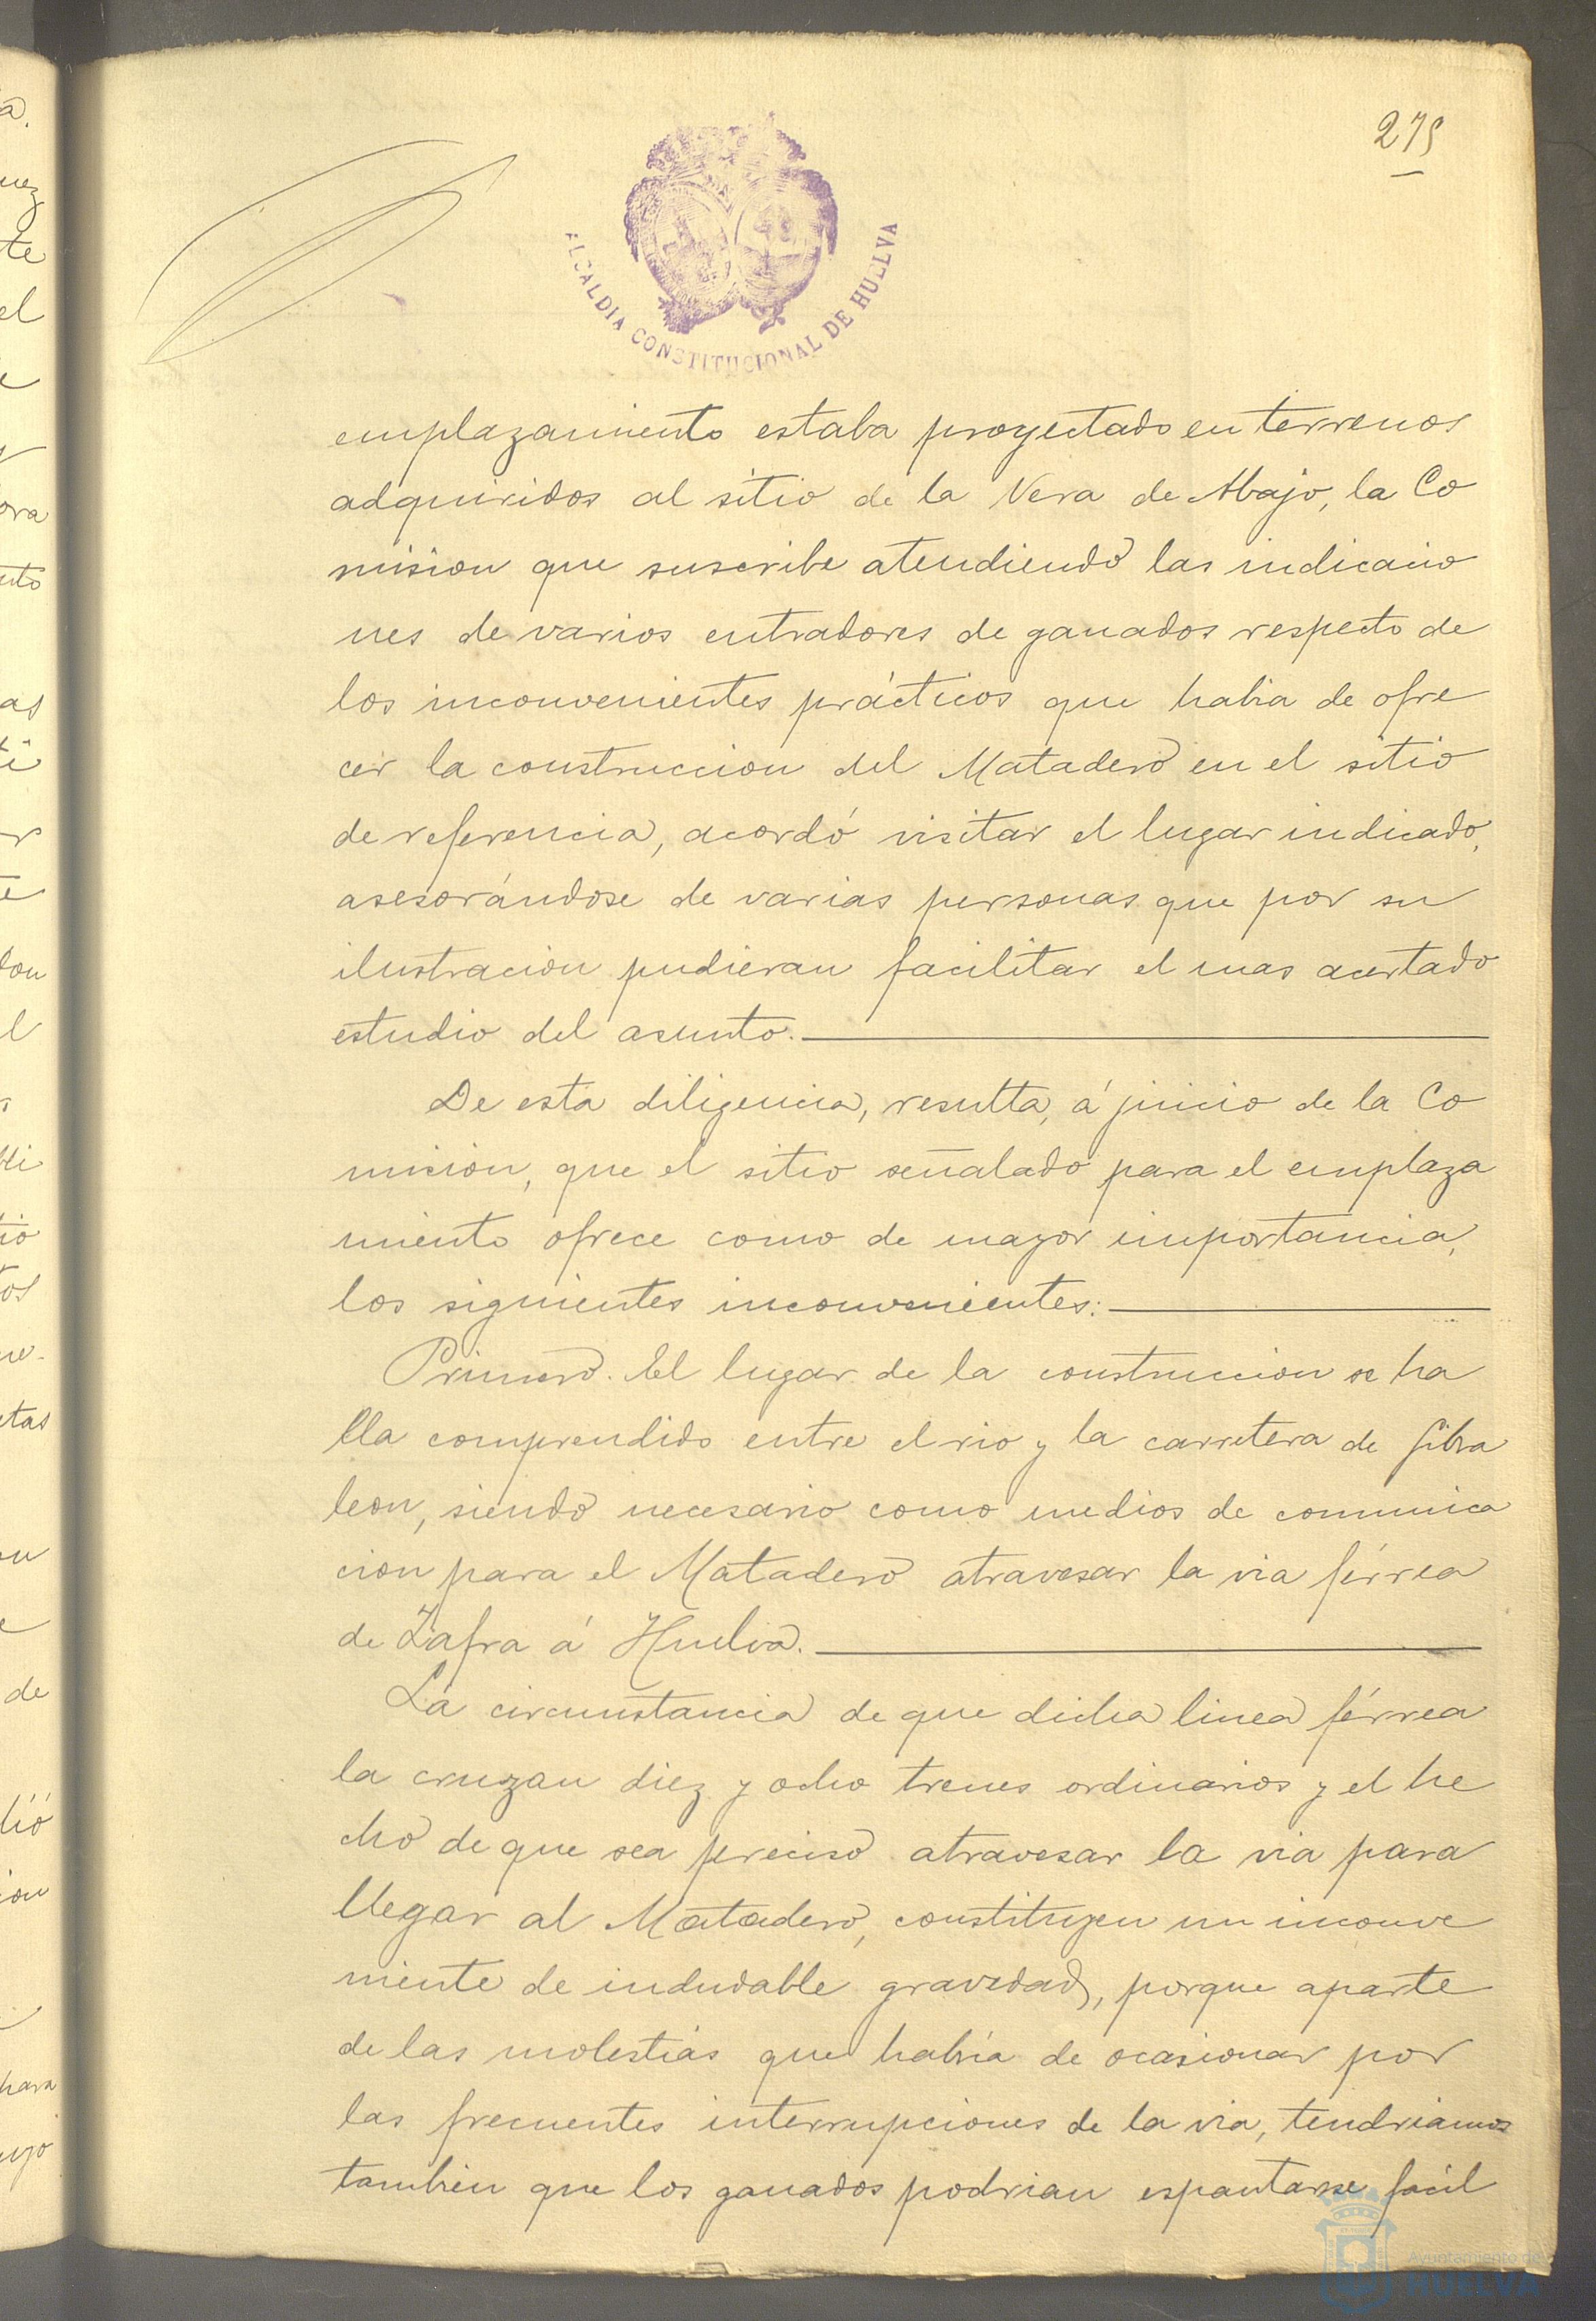 275
ALCALDIA CONSTITUCIONAL DE HUELVA
emplazamiento estaba proyectado en terrenos
adquiridos al sitio de la Vera de Abajo, la Co
mision que suscribe atendiendo las indicacio
nes de varios entradores de ganados respecto de
los inconvenientes prácticos que habia de ofre
cer la construccion del Matadero en el sitio
de referencia, acordó visitar el lugar indicado,
asesorándose de varias personas que por su
ilustracion pudieran facilitar el mas acertado
estudio del asunto.
De esta diligencia, resulta, á juicio de la Co
mision, que el sitio señalado para el emplaza
miento ofrece como de mayor importancia,
los siguientes inconvenientes:
Primero. El lugar de la construccion se ha
lla comprendido entre el rio y la carretera de Gibra
leon, siendo necesario como medios de comunica
cion para el Matadero atravesar la via férrea
de Zafra á Huelva.
La circunstancia de que dicha linea férrea
la cruzan diez y ocho trenes ordinarios y el he
cho de que sea preciso atravesar la via para
llegar al Matadero, constituyen un inconve
niente de indudable gravedad, porque aparte
de las molestias que habría de ocasionar por
las frecuentes interrupciones de la via, tendriamos
tambien que los ganados podrian espantarse fácil
Ayuntamiento de
HUELVA